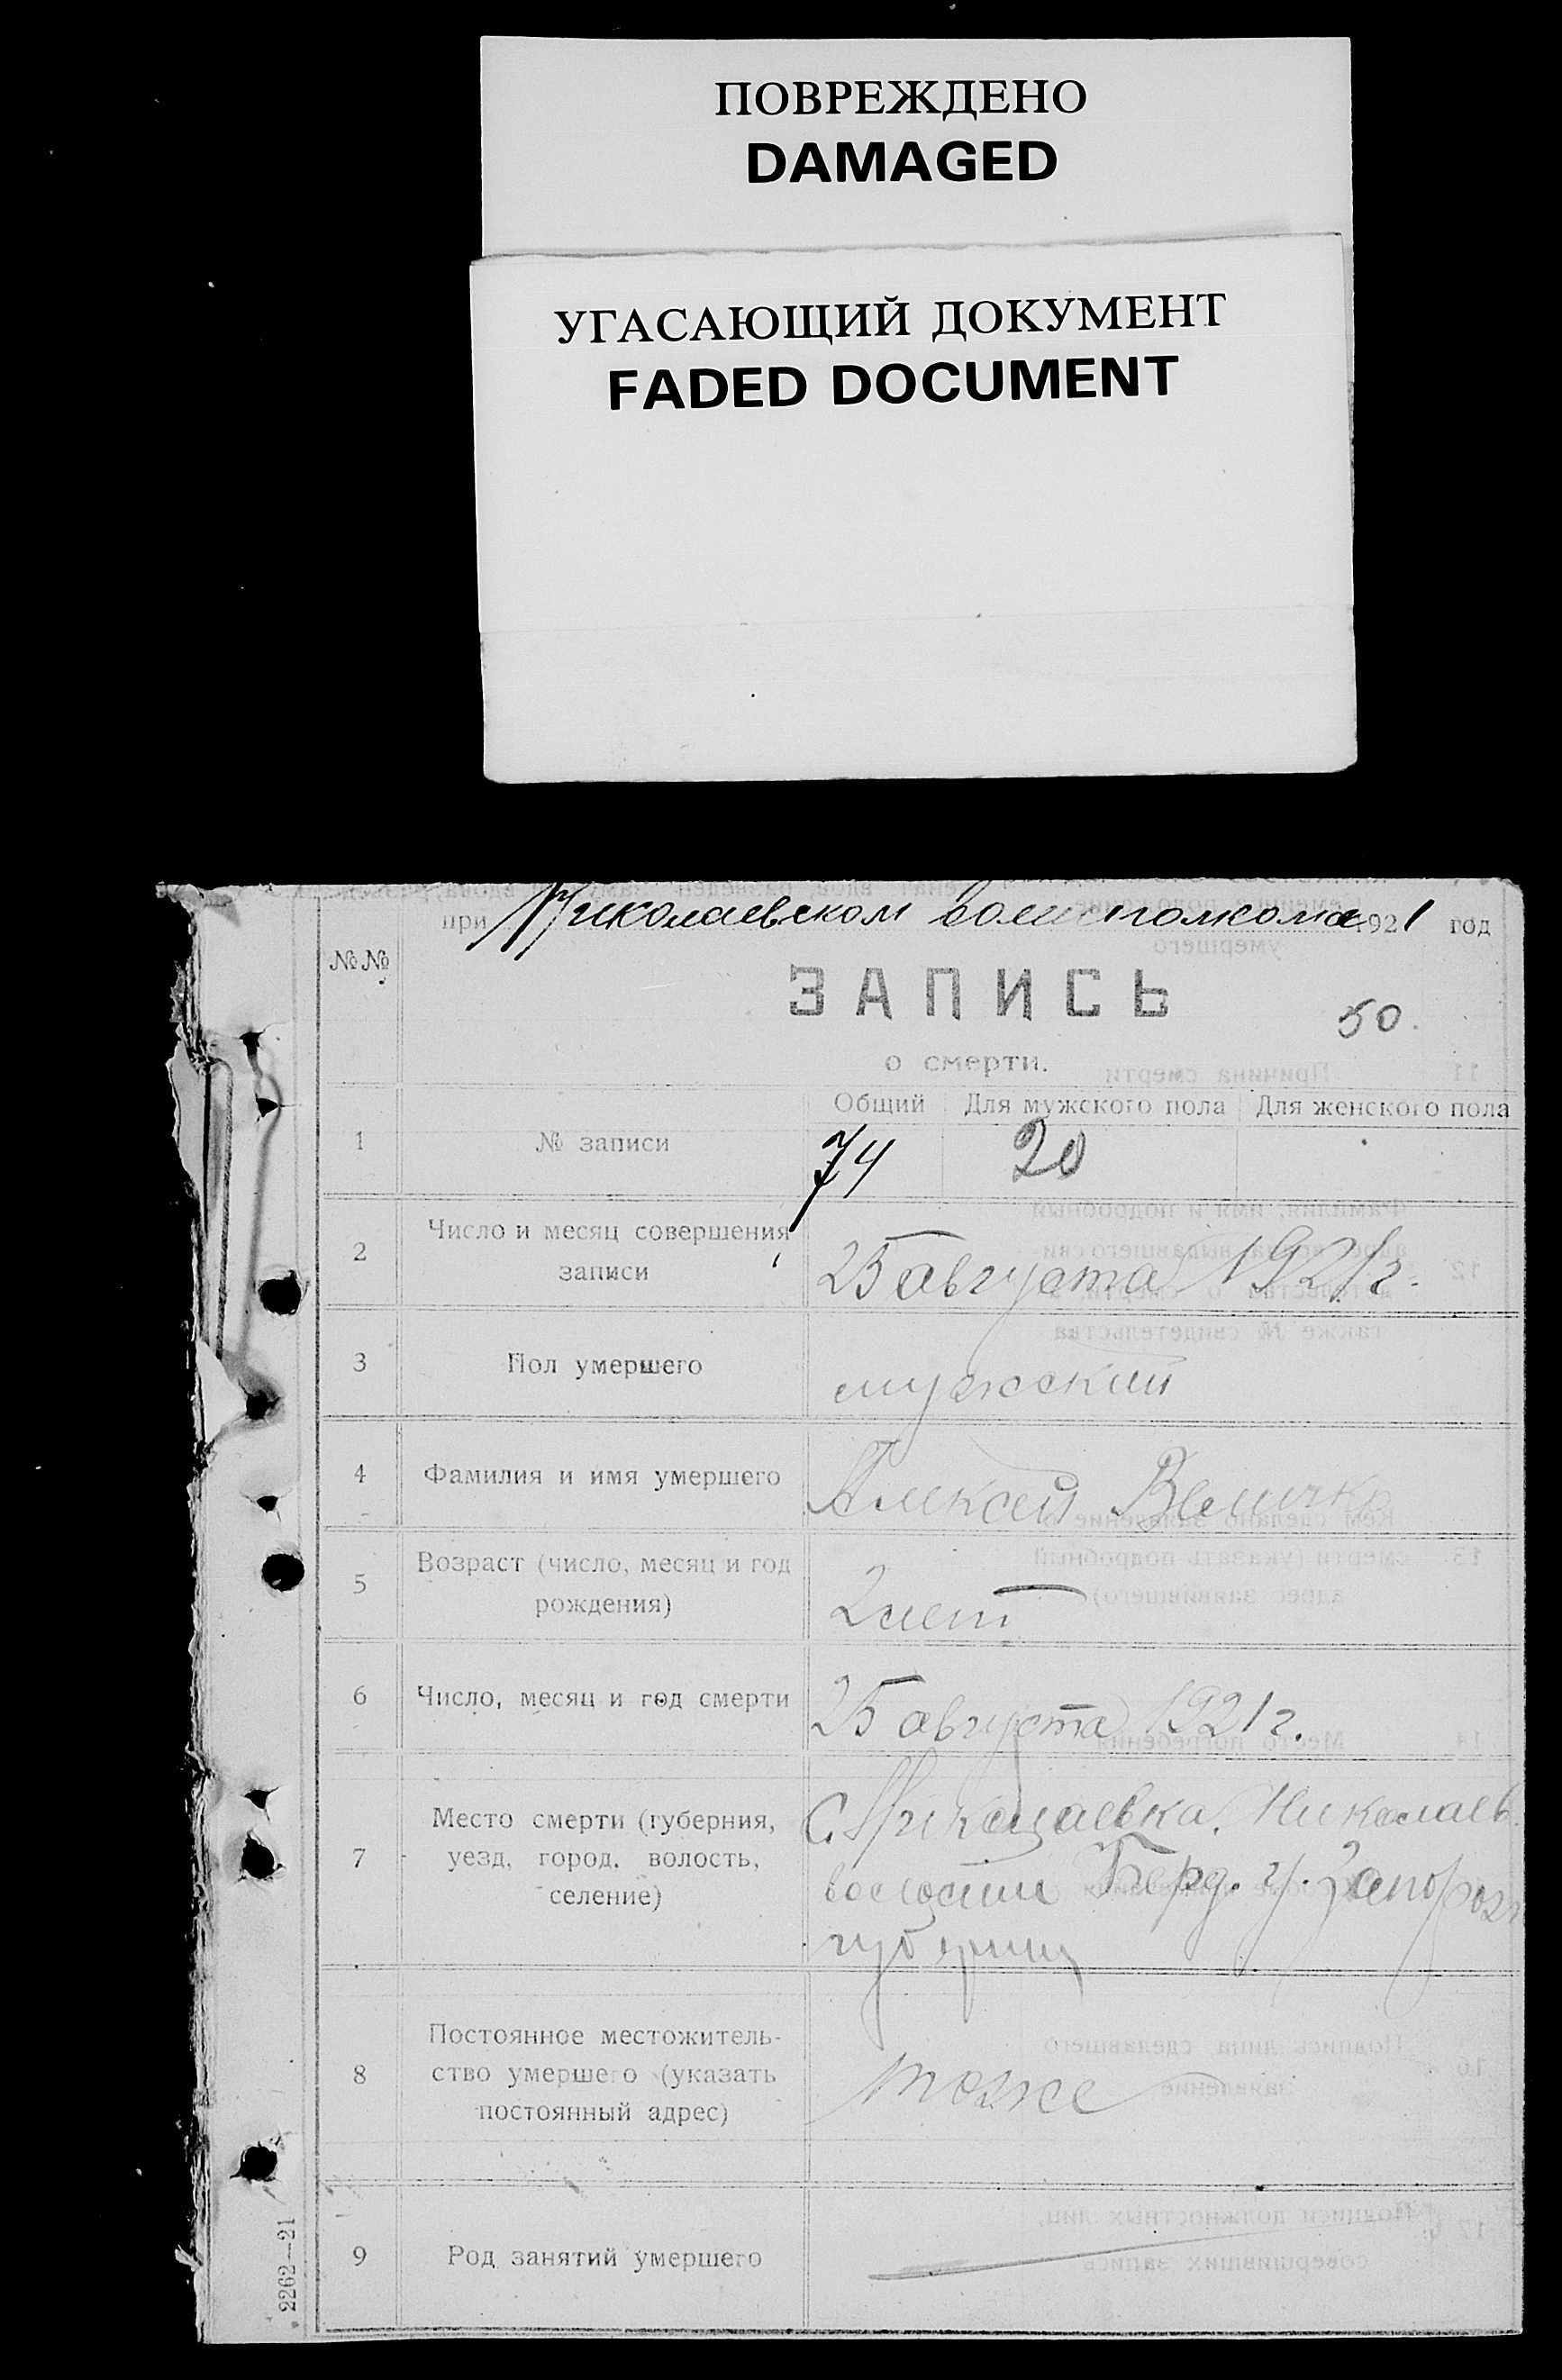 ПОВРЕЖДЕНО
DAMAGED
УГАСАЮЩИЙ ДОКУМЕНТ
FADED DOCUMENT
при Николаевском волисполкома 1921 год
№№
ЗАПИСЬ
50.
о смерти.
Общий Для мужского пола Для женского пола
1 № записи 74 20
2 Число и месяц совершения
записи 25 августа 1921 г.
3 Пол умершего мужской
4 Фамилия и имя умершего Алексей Величко
5 Возраст (число, месяц и год
рождения) 2 лет
6 Число, месяц и год смерти 25 августа 1921 г.
7 Место смерти (губерния,
уезд, город, волость,
селение)
С. Николаевка, Николаев.
волости Берд. у. Запорож
губернии
8 Постоянное местожитель-
ство умершего (указать
постоянный адрес)
тоже
9 Род занятий умершего
2262—21